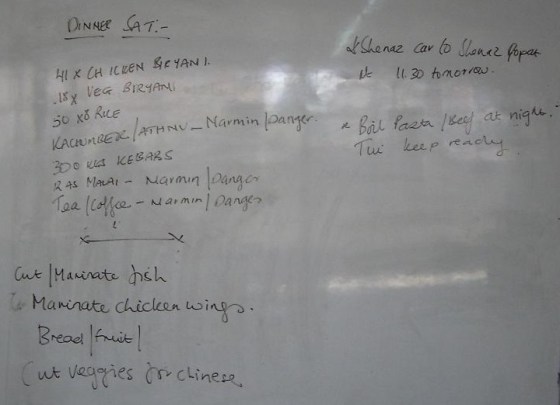 DINNER SAT:-
41 x CHICKEN BIRYANI.
18 x VEG BIRYANI
50 x 8 RICE
KACHUMBER/ATHNU - Narmin/Danger.
300 KEBABS
RAS MALAI - Narmin/Danger
Tea/Coffee - Narmin/Danger
Cut/Marinate fish
Marinate chicken wings.
Bread/fruit/
Cut veggies for chinese
Shenaz car to Shenaz Popat
11.30 tomorrow.
* Boil Pasta/Beef at night.
Tui keep ready